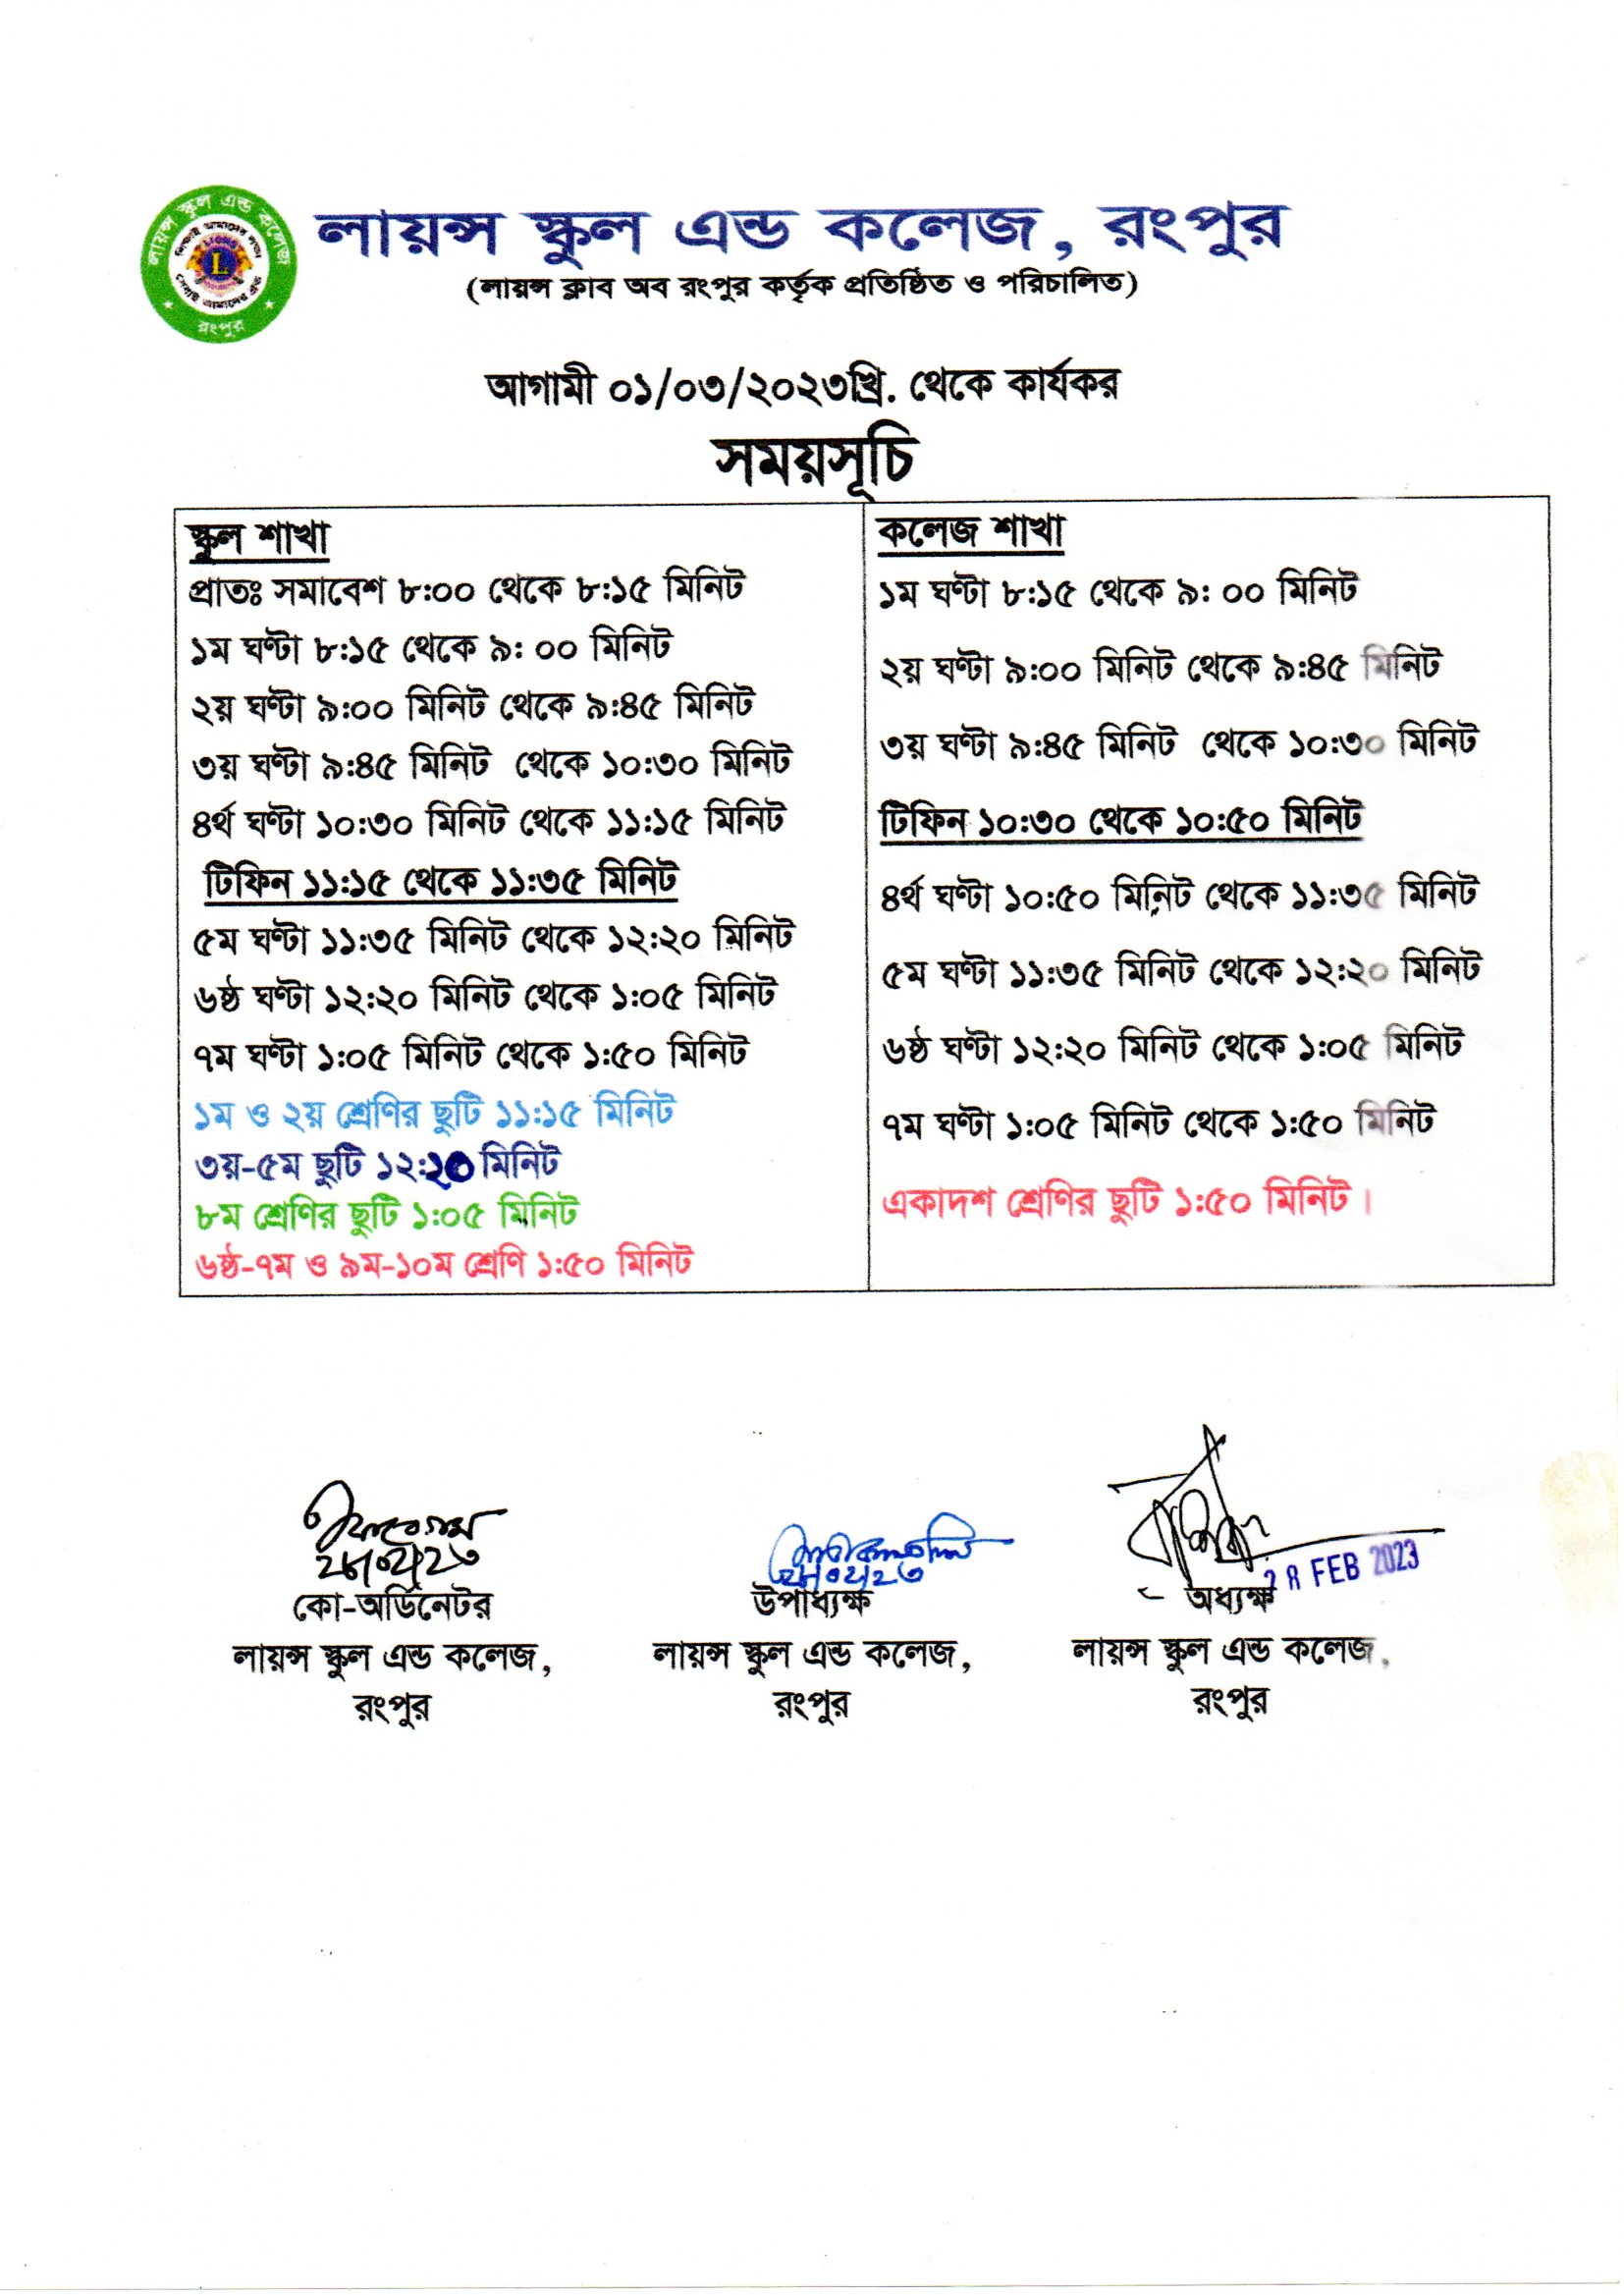 লায়ন্স স্কুল এন্ড কলেজ, রংপুর
(লায়ন্স ক্লাব অব রংপুর কর্তৃক প্রতিষ্ঠিত ও পরিচালিত)
লায়ন্স স্কুল এন্ড কলেজ
LIONS
L
রংপুর
আগামী ০১/০৩/২০২৩খ্রি. থেকে কার্যকর
সময়সূচি
স্কুল শাখা
প্রাতঃ সমাবেশ ৮:০০ থেকে ৮:১৫ মিনিট
১ম ঘণ্টা ৮:১৫ থেকে ৯: ০০ মিনিট
২য় ঘণ্টা ৯:০০ মিনিট থেকে ৯:৪৫ মিনিট
৩য় ঘণ্টা ৯:৪৫ মিনিট থেকে ১০:৩০ মিনিট
৪র্থ ঘণ্টা ১০:৩০ মিনিট থেকে ১১:১৫ মিনিট
টিফিন ১১:১৫ থেকে ১১:৩৫ মিনিট
৫ম ঘণ্টা ১১:৩৫ মিনিট থেকে ১২:২০ মিনিট
৬ষ্ঠ ঘণ্টা ১২:২০ মিনিট থেকে ১:০৫ মিনিট
৭ম ঘণ্টা ১:০৫ মিনিট থেকে ১:৫০ মিনিট
১ম ও ২য় শ্রেণির ছুটি ১১:১৫ মিনিট
৩য়-৫ম ছুটি ১২:২০ মিনিট
৮ম শ্রেণির ছুটি ১:০৫ মিনিট
৬ষ্ঠ-৭ম ও ৯ম-১০ম শ্রেণি ১:৫০ মিনিট
কলেজ শাখা
১ম ঘণ্টা ৮:১৫ থেকে ৯: ০০ মিনিট
২য় ঘণ্টা ৯:০০ মিনিট থেকে ৯:৪৫ মিনিট
৩য় ঘণ্টা ৯:৪৫ মিনিট থেকে ১০:৩০ মিনিট
টিফিন ১০:৩০ থেকে ১০:৫০ মিনিট
৪র্থ ঘণ্টা ১০:৫০ মিনিট থেকে ১১:৩৫ মিনিট
৫ম ঘণ্টা ১১:৩৫ মিনিট থেকে ১২:২০ মিনিট
৬ষ্ঠ ঘণ্টা ১২:২০ মিনিট থেকে ১:০৫ মিনিট
৭ম ঘণ্টা ১:০৫ মিনিট থেকে ১:৫০ মিনিট
একাদশ শ্রেণির ছুটি ১:৫০ মিনিট।
২৮/০২/২৩
কো-অর্ডিনেটর
লায়ন্স স্কুল এন্ড কলেজ,
রংপুর
২৮/০২/২৩
উপাধ্যক্ষ
লায়ন্স স্কুল এন্ড কলেজ,
রংপুর
28 FEB 2023
অধ্যক্ষ
লায়ন্স স্কুল এন্ড কলেজ,
রংপুর